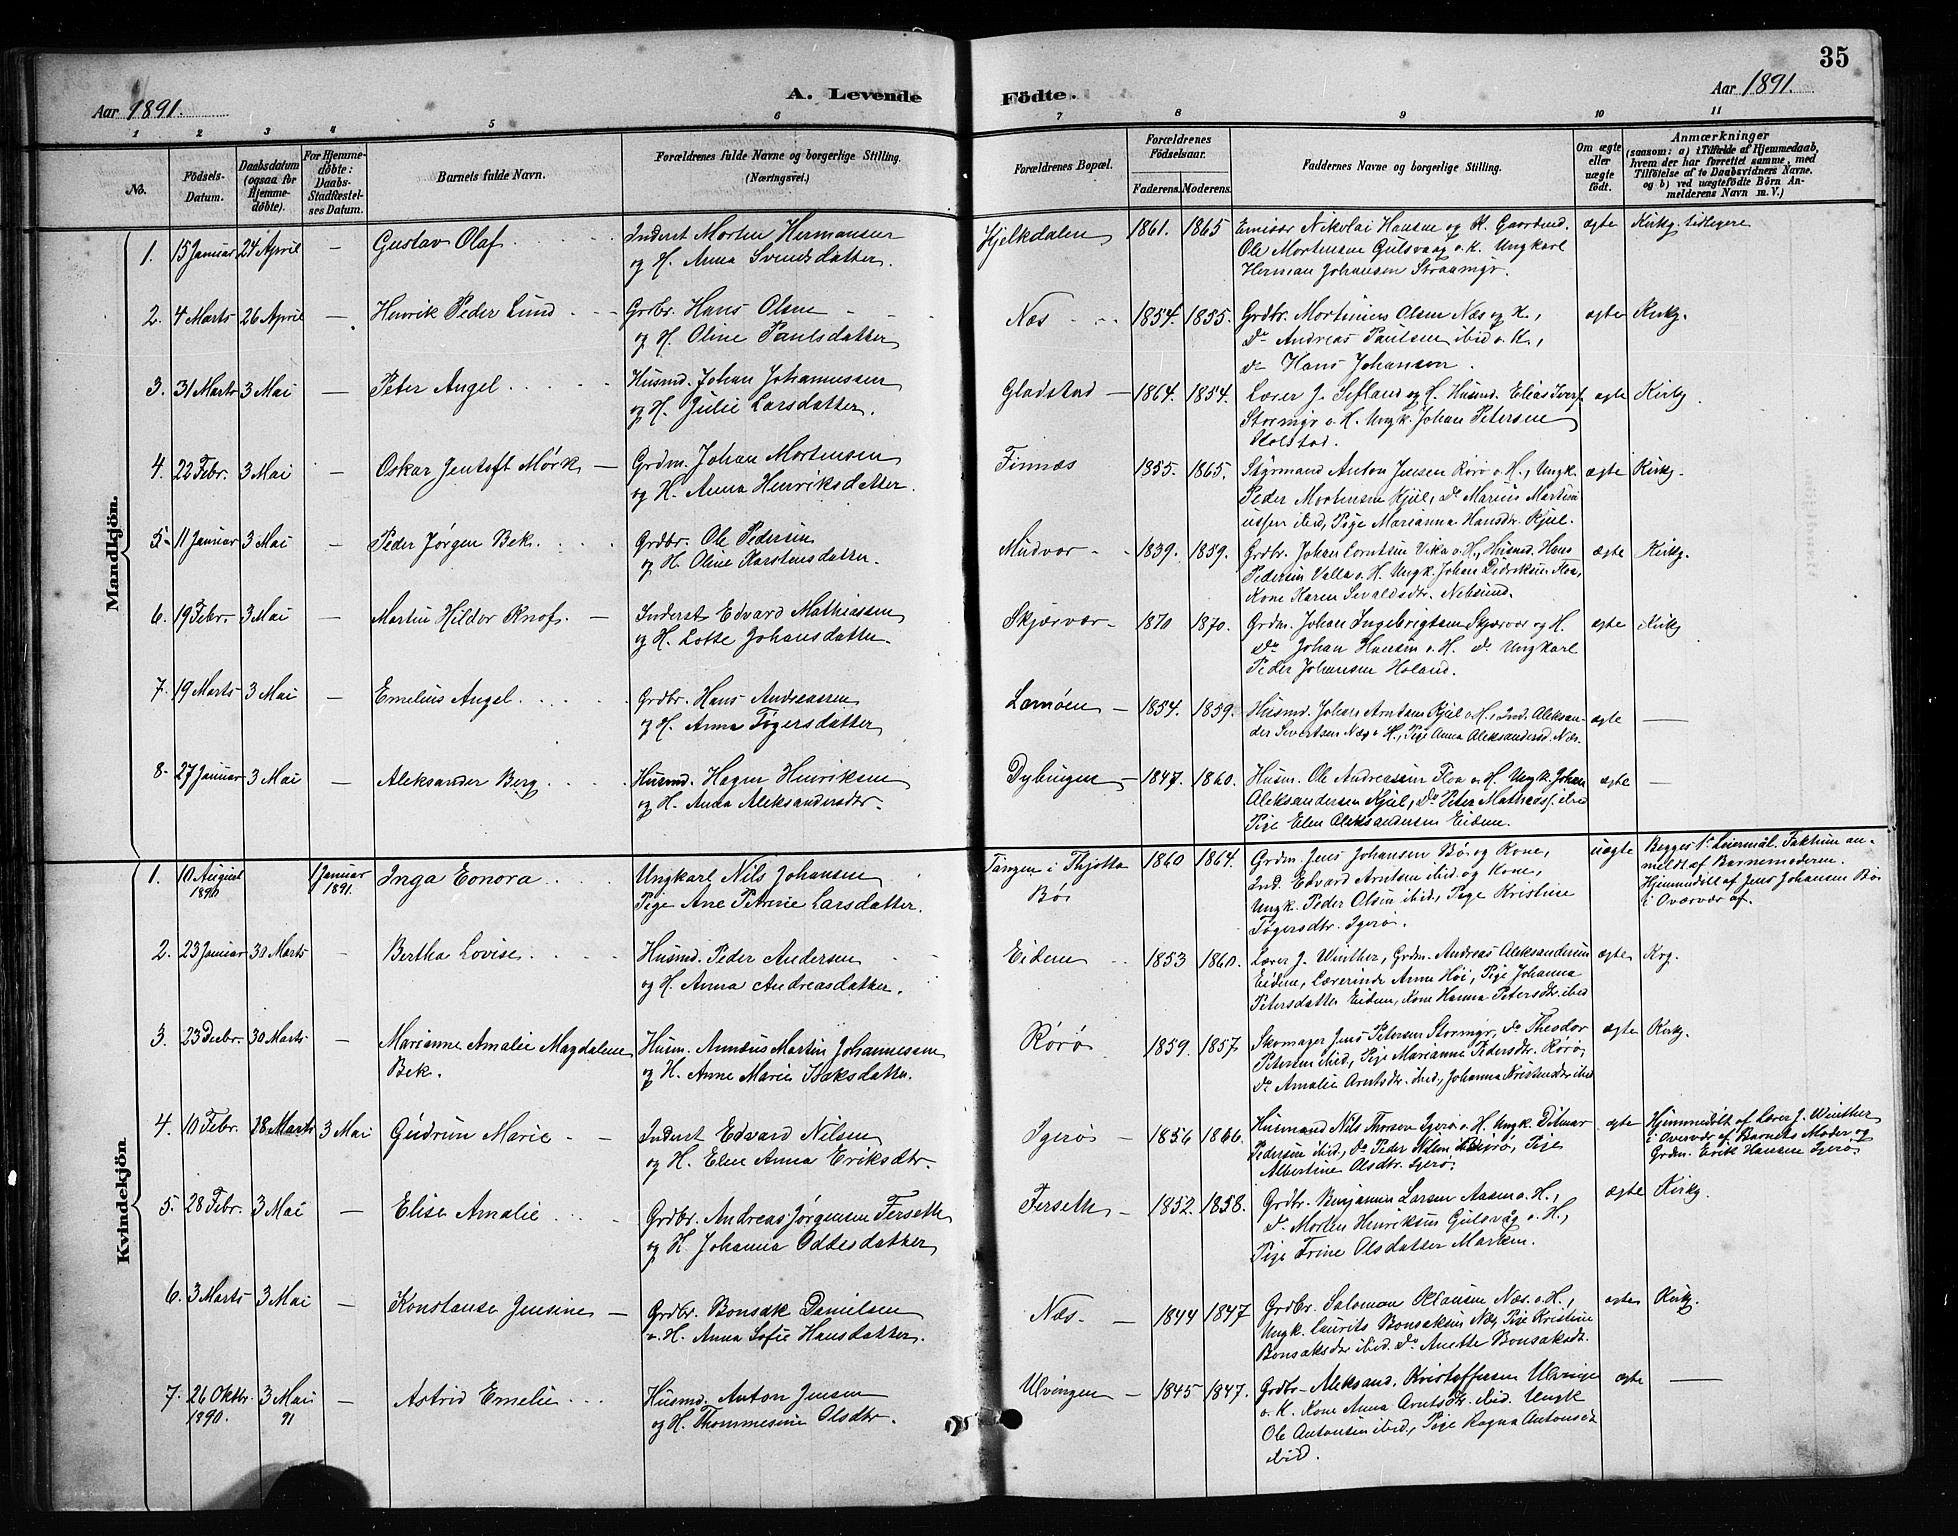 35
Aar 1891.
A. Levende
Födte.
Aar 1891.
1 2 3 4 5 6 7 8 9 10 11
No.
Födsels-Datum.
Daabsdatum (ogsaa for Hjemme-döbte).
For Hjemme-döbte: Daabs-Stadfæstel-ses Datum.
Barnets fulde Navn.
Forældrenes fulde Navne og borgerlige Stilling. (Næringsvei.)
Forældrenes Bopæl.
Forældrenes Födselsaar.
Faderens. Moderens.
Faddernes Navne og borgerlige Stilling.
Om ægte eller uægte födt.
Anmærkninger
(saasom: a) i Tilfælde af Hjemmedaab, hvem der har forrettet samme, med Tilföielse af to Daabsvidners Navne. og b) ved uægtefödte Börn Anmelderens Navn m. V.)
Mandkjön.
1. 15 Januar 24 April — Gustav Olaf
Inderst Morten Hermansen
og H. Anna Svendsdatter.
Hjelkdalen 1861. 1865
Emissær Nikolai Hansen og K.
Ole Mortensen Gulsvaag o. K. Ungkarl
Herman Johansen
ægte Kirkg. tidligere
2. 4 Marts 26 April — Henrik Peder Lund
Grdbr. Hans Olsen
og H. Oline Paulsdatter
Næs 1854. 1855.
Grdbr. Mortinius Olsen Næs og K.,
Do Andreas Paulsen ibid o. K.,
do Hans Johanson.
ægte Kirkg.
3. 31 Marts 3 Mai — Peter Angel
Husmd. Johan Johannessen
og H. Julie Larsdatter.
Gladstad — 1864. 1854.
Lærer J. Sefland og H. Husmd. Elias Iverf.
Stormyr o. H. Ungk. Johan Petersen
ægte Kirkg.
4. 22 Febr. 3 Mai — Oskar Jentoft Mørk —
Grdm. Johan Mortensen
og H. Anna Henriksdatter.
Finnæs 1855. 1865.
Styrmand Anton Jensen Rørø o. H., Ungk.
Peder Mortensen Kjul, Do Marius Martini-
ussen ibid, Pige Marianna Hansdtr. Kjul.
ægte Kirkg.
5. 11 Januar 3 Mai — Peder Jørgen Bek.
Grdbr. Ole Pedersen
og H. Oline Karstensdatter.
Mudvær 1839. 1859.
Grdbr. Johan Lorntsen Vika o. H., Husmd. Hans
Pedersen Valla o. H. Ungk. Johan Didriksen
Kone Karen Sevaldsdtr. Nilsund.
ægte Kirkg.
6. 19 Febr. 3 Mai — Martin Hildor Knof. —
Inderst Edvard Mathiassen
og H. Lotte Johansdatter
Skjærvær 1870 1870.
Grdm. Johan Ingebrigtsen Skjærvær og H.
Do Johan Hansen o. H. Do Ungkarl
Peder Johansen Holand.
ægte Kirkg
7. 19 Marts 3 Mai — Emelius Angel.
Grdbr. Hans Andreassen
og H. Anna Tøgersdatter
1854. 1859.
Husmd. Johan Arntsen Kjul o. H., Ind. Aleksan-
der Severtsen Næs o H., Pige Anna Aleksandersd. Næs.
ægte —
8. 27 Januar 3 Mai — Aleksander Berg.
Husmd. Hagen Henriksen
og H. Anna Aleksandersdtr.
Dybingen 1847. 1860.
Husm. Ole Andreassen Floa o. H. Ungk. Johan
Aleksandersen Kjul, Do Peter Mathiass. ibid
Pige Elen Aleksandersen Eidem.
ægte —
Kvindekjön.
1. 10 August 1890 1 Januar 1891. Inga Eonora
Ungkarl Nils Johansen
Pige Ane Petrine Larsdatter.
Tangen i Thjøtta
Bøs
1860 1864.
Grdm. Jens Johansen Bø og Kone,
Ind. Edvard Arntsen ibid og Kone,
Ungk. Peder Olsen ibid, Pige Kristine
Tøgersdtr. Igerø.
uægte
Begges 1ste Leiermål. Faktum an-
meldt af Barnemoderen.
Hjemmedøbt af Jens Johansen Bø
i Overvær af.
2. 23 Januar 30 Marts — Bertha Lovise
Husmd. Peder Andersen
og H. Anna Andreasdatter.
Eidem 1853 1860.
Lærer J. Winther, Grdm. Andreas Aleksandersen
Eidem, Lærerinde Anna Høi, Pige Johanna
Petersdatter Eidem, Kone Hanna Petersdtr. ibid
ægte Krg.
3. 23 Decbr. 30 Marts — Marianne Amalie Magdalene
Bek.
Husm. Annæus Martin Johannessen
og H. Anne Marie Isaksdatter.
Rørø 1859. 1857
Skomager Jens Petersen Stormyr, Do Theodor
Petersen ibid, Pige Marianne Pedersdtr. Rørø,
Do Amalie Arntsdtr. ibid, Johanna Kristensdtr ibid
ægte Kirkg.
4. 10 Febr. 18 Marts 3 Mai Gudrun Marie
Inderst Edvard Nilsen
og H. Elen Anna Eriksdtr.
Igerø 1856 1866.
Husmand Nils Thorsen Igerø o. H. Ungk. Ditmar
Pedersen ibid, Do Peder Igerø, Pige
Albertine Olsdtr. Igerø
ægte
Hjemmedøbt af Lærer J. Winther
i Overvær af Barnets Moder og
Grdm. Erik Hansen Igerø
5. 28 Febr. 3 Mai — Elise Amalie
Grdbr. Andreas Jørgensen Ferseth
og H. Johanna Oddesdatter
Ferseth 1852. 1858.
Grdbr. Benjamin Larsen Aasen o. H.,
Do Morten Henriksen Gulsvåg o. H.,
Pige Trine Olsdatter Marken.
ægte Kirkg.
6. 3 Marts 3 Mai — Konstanse Jensine —
Grdbr. Bonsak Danielsen
o. H. Anna Sofie Hansdatter.
Næs. — 1844 1847
Grdbr. Salomon Klausen Næs. o. H.,
Ungk. Laurits Bonsaksen Næs, Pige Kristine
Bonsaksdtr ibid. Do Anette Bonsaksdt.
ægte Kirkg.
7. 26 Oktbr. 1890. 3 Mai 91 — Astrid Emelie
Husmd. Anton Jensen
og H. Thommesine Olsdtr.
Ulvingen 1845 1847.
Grdbr. Aleksand. Kristoffersen Ulvinge
o. K. Kone Anna Arntsdtr. ibid. Ungk
Ole Antonsen ibid., Pige Ragna Antonsdt
ibid.
ægte —